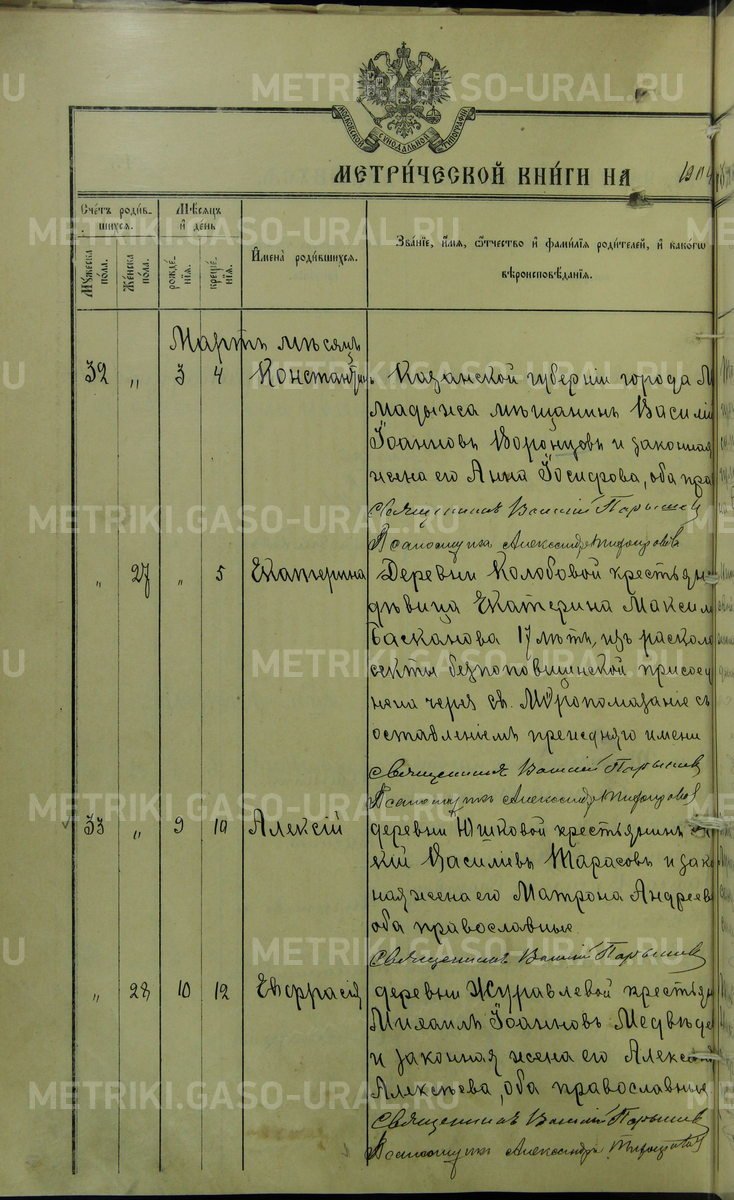 METRIKI.GASO-URAL.RU
МОСКОВСКОЙ СУНОДАЛЬНОЙ ТИПОГРАФІИ
МЕТРИ́ЧЕСКОЙ КНИ́ГИ НА 1904
Сче́тъ роди́в- шихся.
Мѣ́сяцъ и҆ де́нь
Му́жеска по́ла.
Же́нска по́ла.
рожде́- нія.
креще́- нія.
И҆мена̀ роди́вшихся.
Зва́ніе, и҆́мя, ѻ҆́тчество и҆ фами́лія роди́телей, и҆ како́гѡ
вѣроисповѣ́данія.
Мартъ мѣсяцъ
32 „ 3 4 Константинъ Казанской губерніи города
мадыжа мѣщанинъ Василій
Іоанновъ Воронцовъ и законная
жена его Анна Іосифова, оба пра
Священникъ Василій Парышев
Псаломщикъ Александръ
„ 27 „ 5 Екатерина Деревни Колобовой крестьян
дѣвица Екатерина Максим
Басканова 17 лѣтъ, изъ раскола
секты безпоповщинской присоед
нена чрезъ св. Мѵропомазаніе съ
оставленіемъ преждняго имени
Священникъ Василій Парышев
Псаломщикъ Александръ
33 „ 9 10 Алексій деревни Юшковой крестьянинъ
кій Василіевъ Тарасовъ и зак
ная жена его Матрона Андреев
оба православные
Священникъ Василій Парышев
„ 28 10 12 Евфрасія деревни Журавлевой крестья
Михаилъ Іоанновъ Медвѣде
и законная жена его Алексан
Алексѣева, оба православные
Священникъ Василій Парышев
Псаломщикъ Александръ